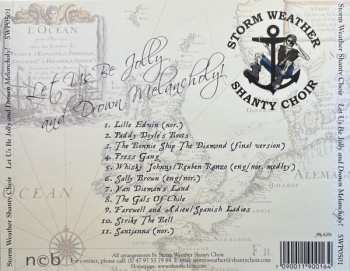 Storm Weather Shanty Choir Let Us Be Jolly and Drown Melancholy! SWPDS01
L'OCEAN
STORM WEATHER
SHANTY CHOIR
Let Us Be Jolly
and Drown Melancholy!
1 Lille Edwin (nor.)
2 Paddy Doyle's Boots
3 The Bonnie Ship The Diamond (final version)
4 Press Gang
5 Whisky Johnny/Reuben Ranzo (eng/nor. medley)
6 Sally Brown (eng/nor.)
7 Van Diemen's Land
8 The Gals Of Chile
9 Farewell and Adieu/Spanish Ladies
10 Strike The Bell
11 Santianna (nor.)
ncb
All arrangements by Storm Weather Shanty Choir
9 090011 900164
Storm Weather Shanty Choir Let Us Be Jolly and Drown Melancholy! SWPDS01